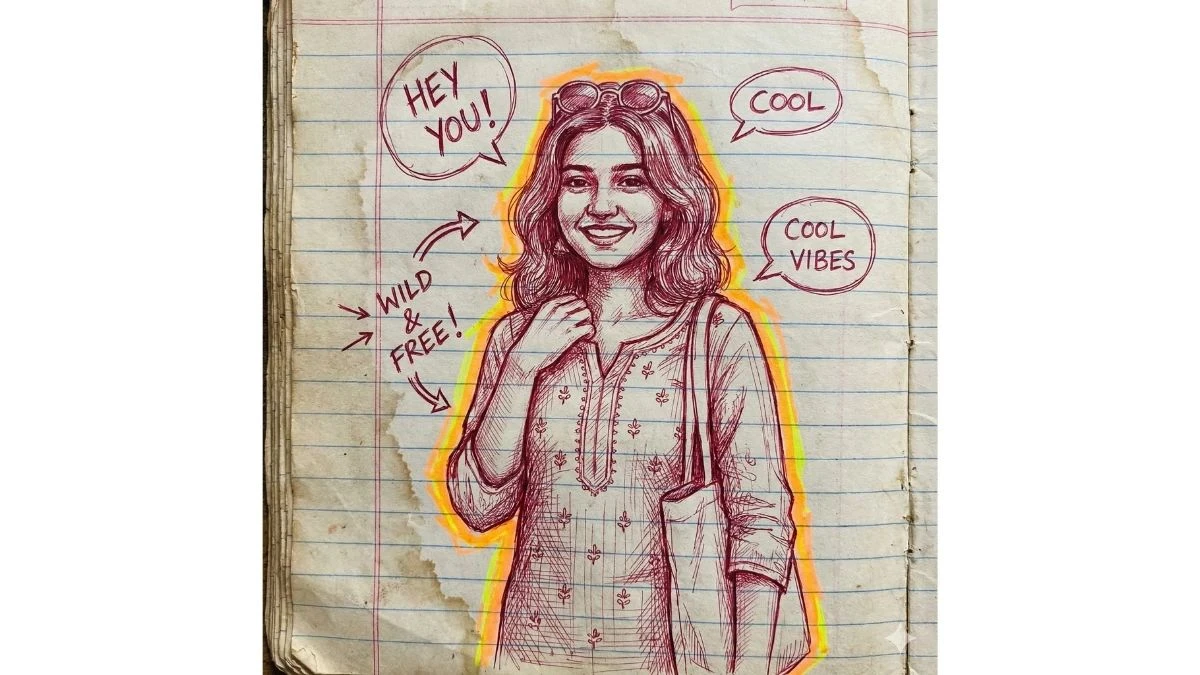 HEY
YOU!
COOL
COOL
VIBES
WILD
&
FREE!